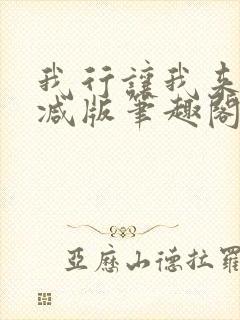 我行讓我來
減版筆趣閣
亞歷山德拉羅